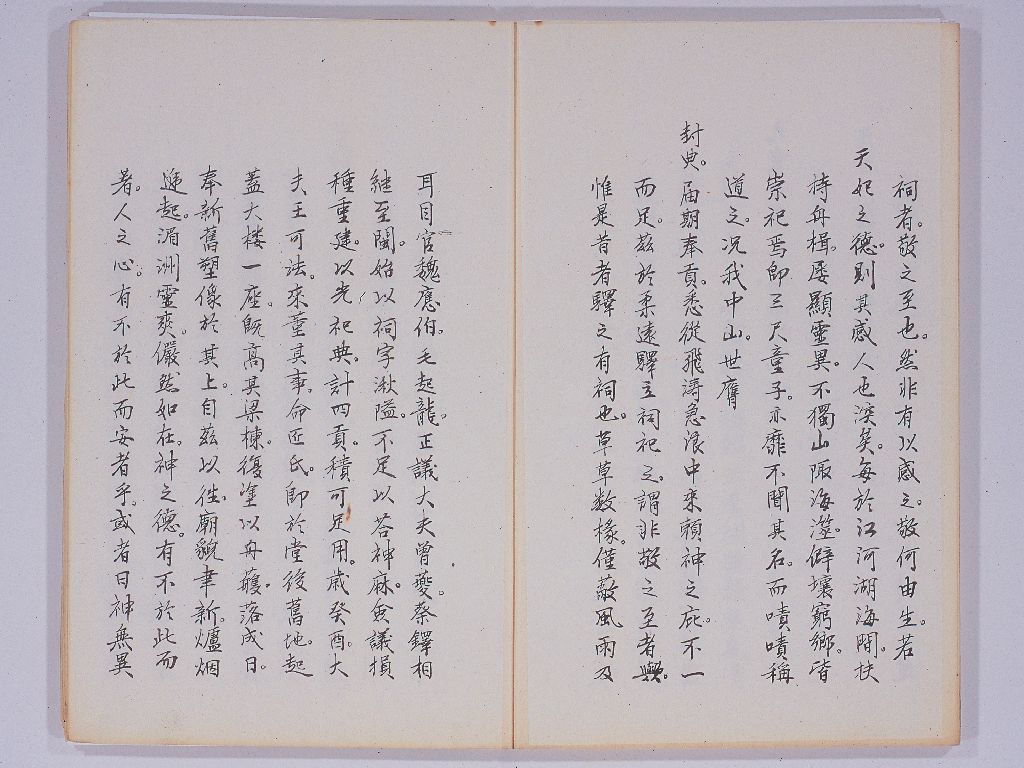 祠者。敬之至也。然非有以感之。敬何由生。若
天妃之德。則其感人也深矣。每於江河湖海間。扶
持舟楫。屡顯靈異。不獨山陬海澨。僻壤窮鄉。皆
崇祀焉。即三尺童子。亦靡不聞其名。而嘖嘖稱
道之。况我中山。世膺
封典。届期奉貢。悉從飛濤急浪中來。賴神之庇。不一
而足。兹於柔遠驛立祠祀之。謂非敬之至者歟。
惟是昔者驛之有祠也。草草数椽。僅蔽風雨。及
耳目官魏應伯。毛起龍。正議大夫曾夔。蔡鐸相
継至閩。始以祠宇湫隘。不足以荅神庥。僉議損
種重建。以光祀典。計四貢。積可足用。歳癸酉。大
夫王可法。來董其事。命匠氏。即於堂後舊地。起
蓋大楼一座。既高其梁棟。復塗以丹雘。落成日。
奉新舊塑像於其上。自兹以徃。廟貌聿新。爐烟
逓起。湄洲靈爽。儼然如在。神之德。有不於此而
著。人之心。有不於此而安者乎。或者曰神無異